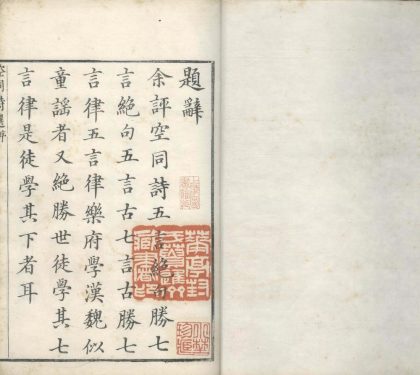 題辭
余評空同詩五言絕句勝七
言絕句五言古七言古勝七
言律五言律樂府學漢魏似
童謠者又絕勝世徒學其七
言律是徒學其下者耳